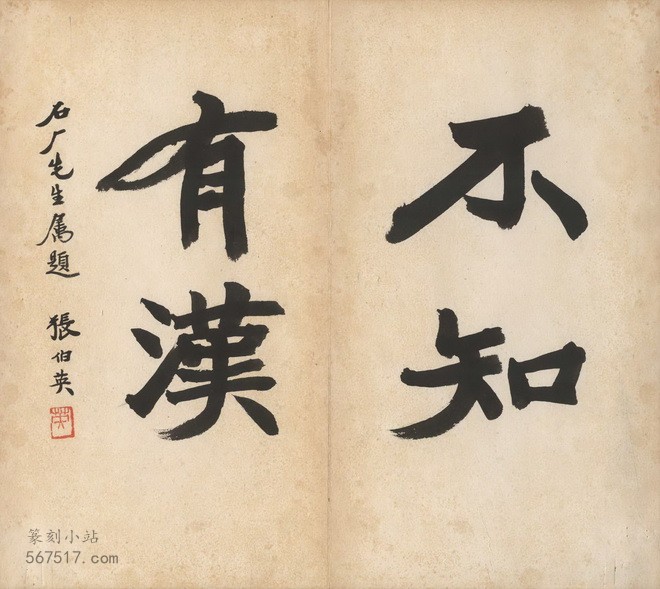 不知
有漢
石厂先生属題
張伯英
英
篆刻小站
567517.com